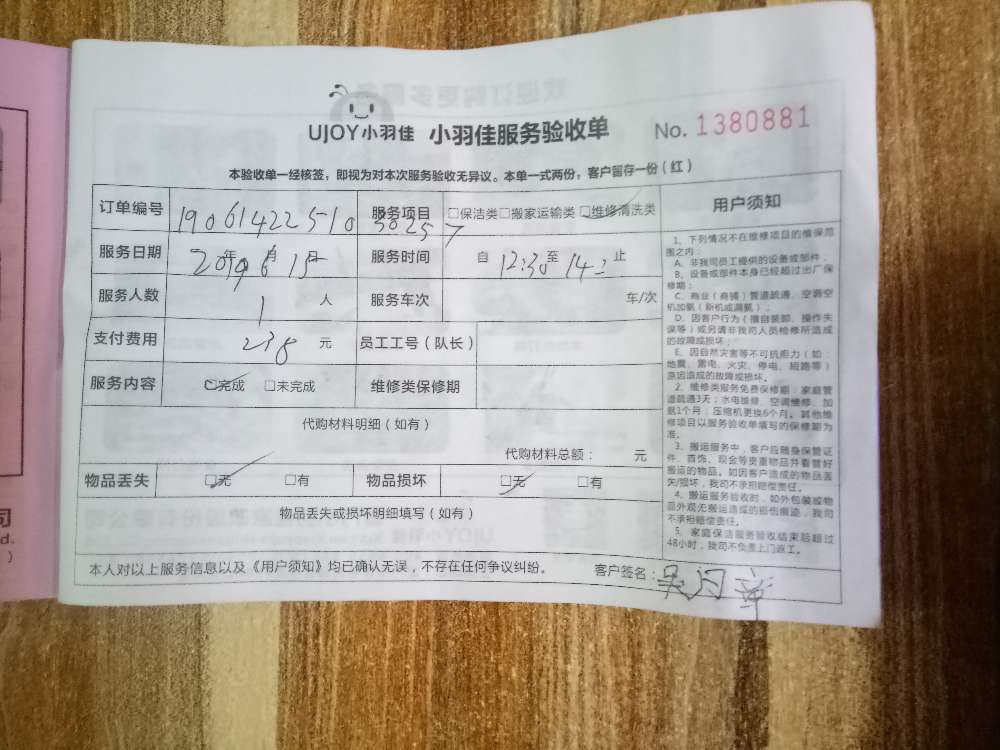 UJOY小羽佳 小羽佳服务验收单 No. 1380881
本验收单一经核签，即视为对本次服务验收无异议。本单一式两份，客户留存一份（红）
订单编号 19061422510 30257 服务项目 □保洁类□搬家运输类□维修清洗类
服务日期 2019年6月15日 服务时间 自 12:30至 14: 止
服务人数 1 人 服务车次 车/次
支付费用 238 元 员工工号（队长）
服务内容 □完成 □未完成 维修类保修期
代购材料明细（如有）
代购材料总额： 元
物品丢失 □无 □有 物品损坏 □无 □有
物品丢失或损坏明细填写（如有）
本人对以上服务信息以及《用户须知》均已确认无误，不存在任何争议纠纷。 客户签名：吴闪章
用户须知
1、下列情况不在维修项目的维保范
围之内：
A、非我司员工提供的设备或部件；
B、设备或部件本身已经超过出厂保
修期；
C、商业（商铺）管道疏通、空调空
机加氨（新机或漏氨）；
D、因客户行为（擅自装卸、操作失
误等）或另请非我司人员检修所造成
的故障或损坏；
E、因自然灾害等不可抗能力（如：
地震、雷电、火灾、停电、短路等）
原因造成的故障或损坏。
2、维修类服务免费保修期：家庭管
道疏通3天；水电维修、空调维修、加
氨1个月，压缩机更换6个月。其他维
修项目以服务验收单填写的保修期为
准。
3、搬运服务中，客户应随身保管证
件、首饰、现金等贵重物品并看管好
搬运的物品。如因客户造成的物品丢
失/损坏，我司不承担赔偿责任。
4、搬运服务验收时，如外包装或物
品外观无搬运造成的损伤痕迹，我司
不承担赔偿责任。
5、家庭保洁服务验收结束后超过
48小时，我司不负责上门返工。
司
d.
)